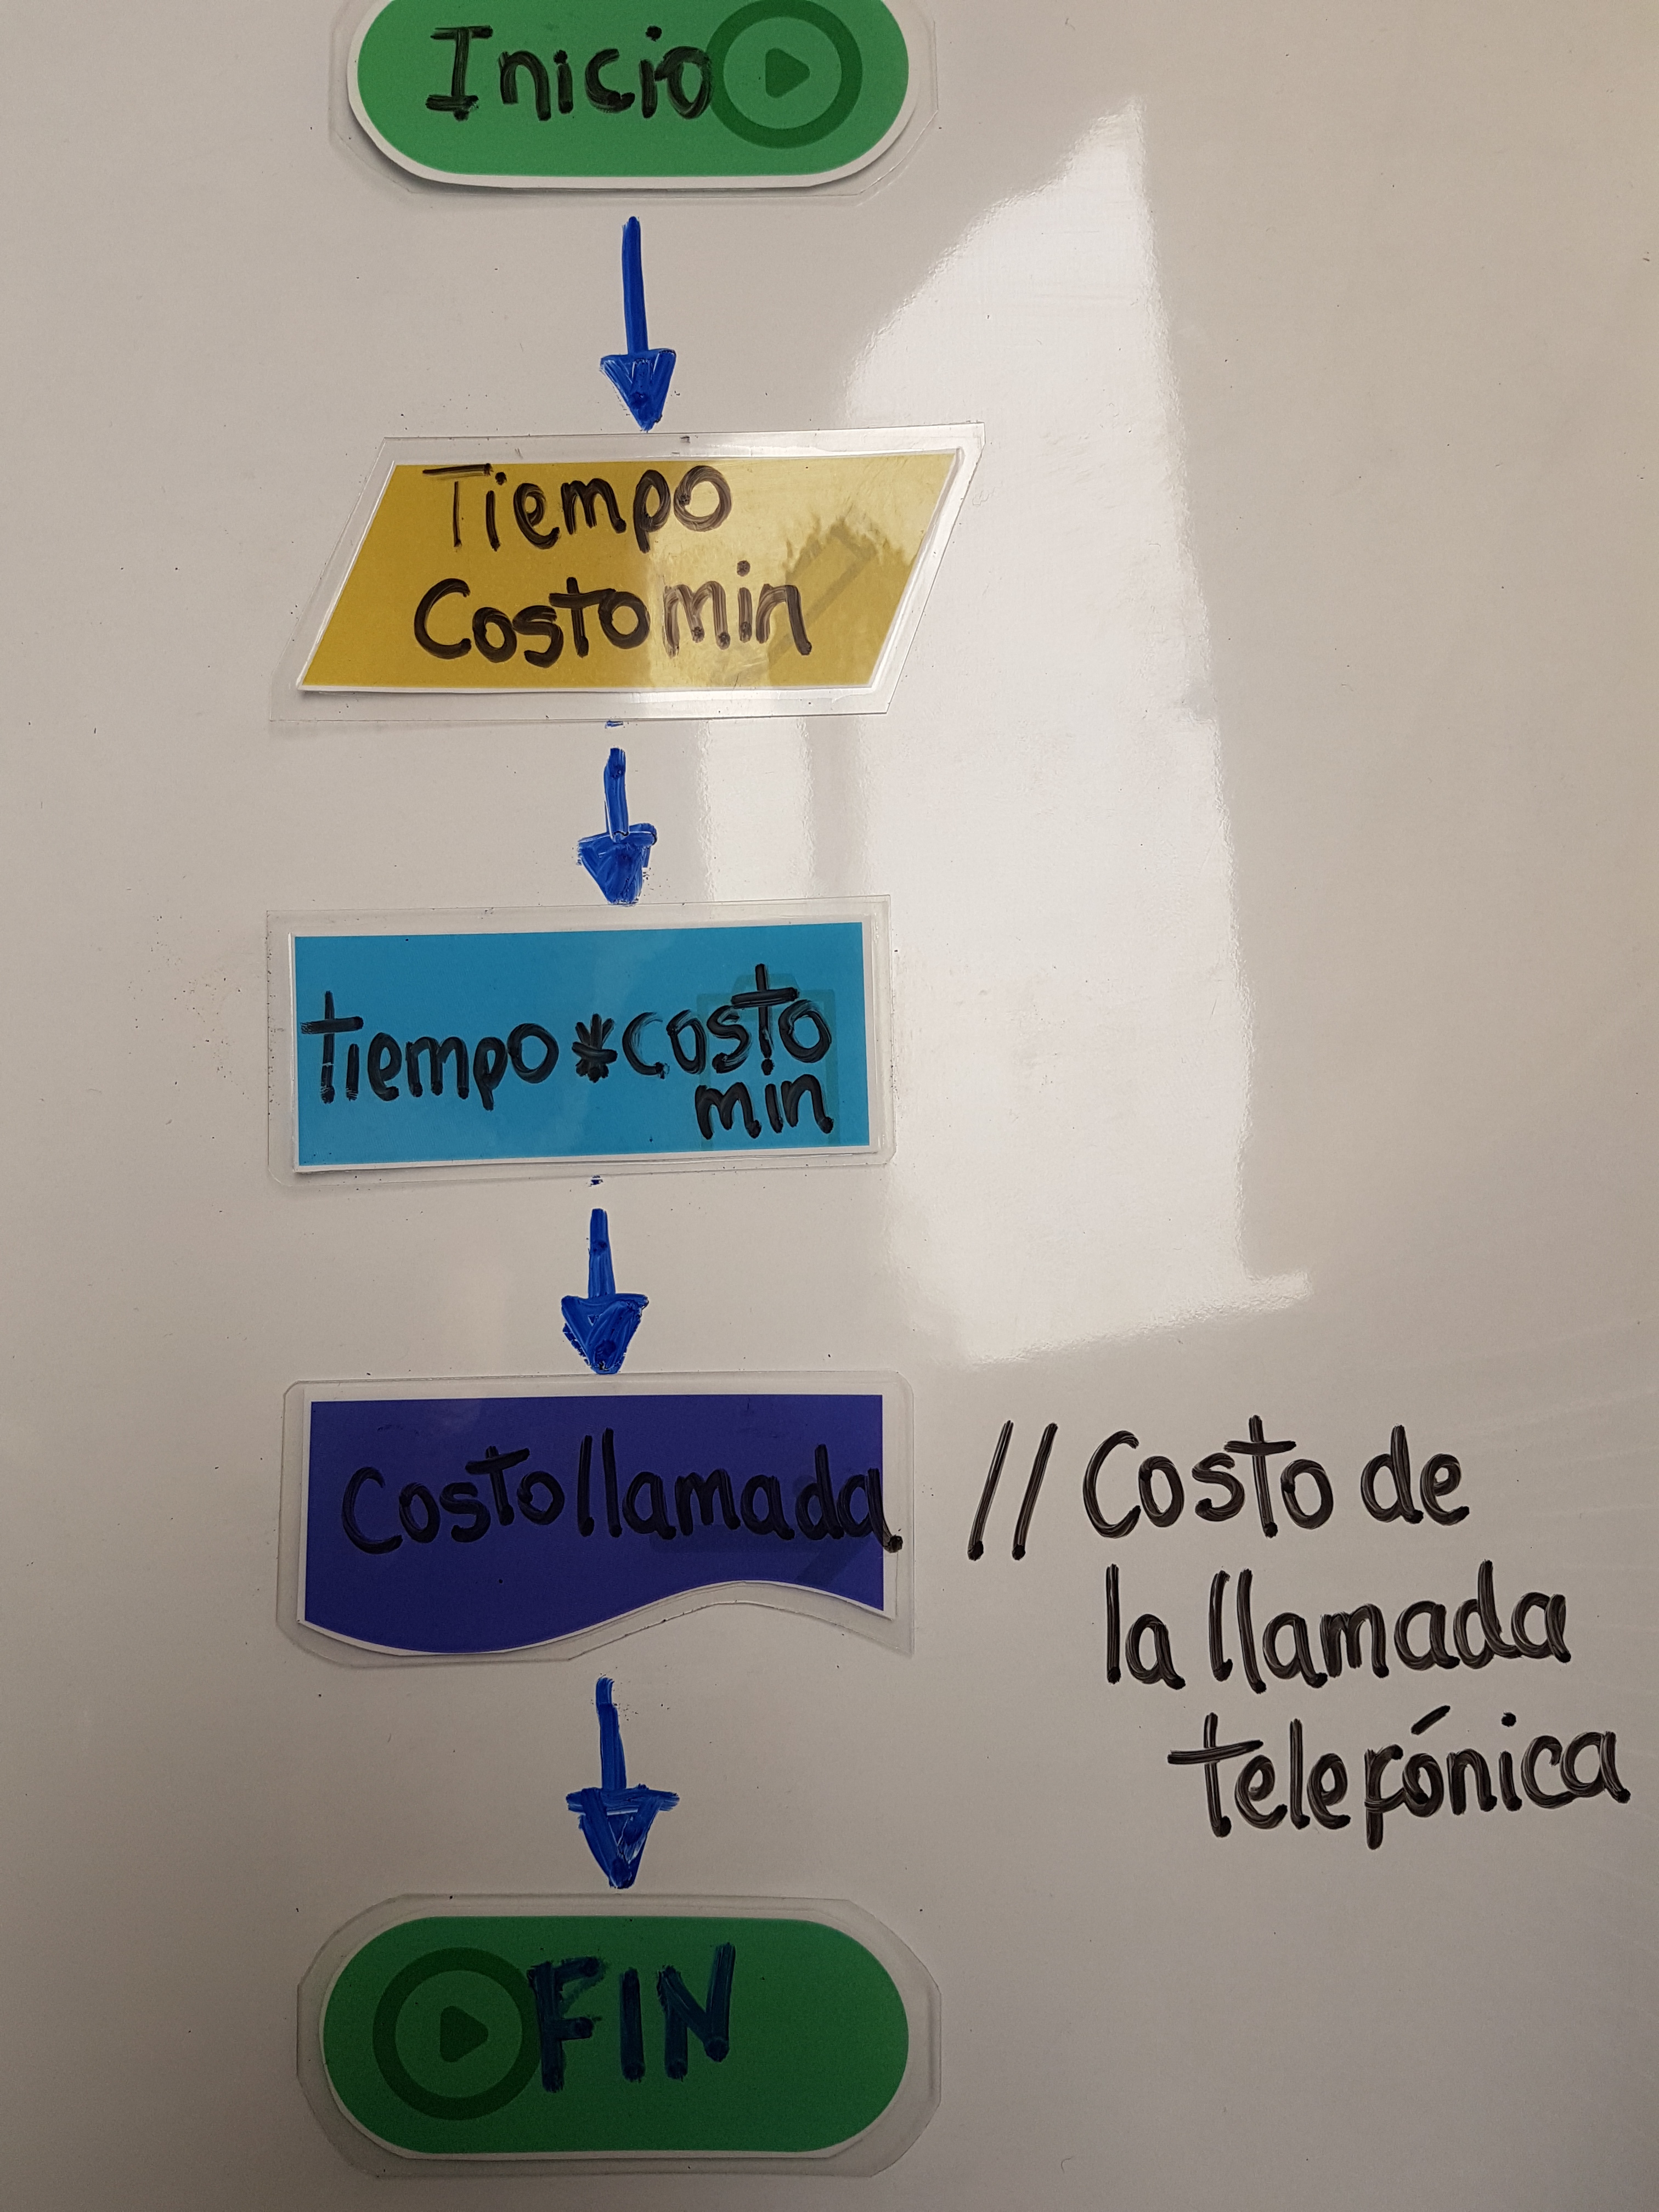 Inicio
Tiempo
Costomin
tiempo*costo
min
Costollamada
// Costo de
la llamada
telefónica
FIN